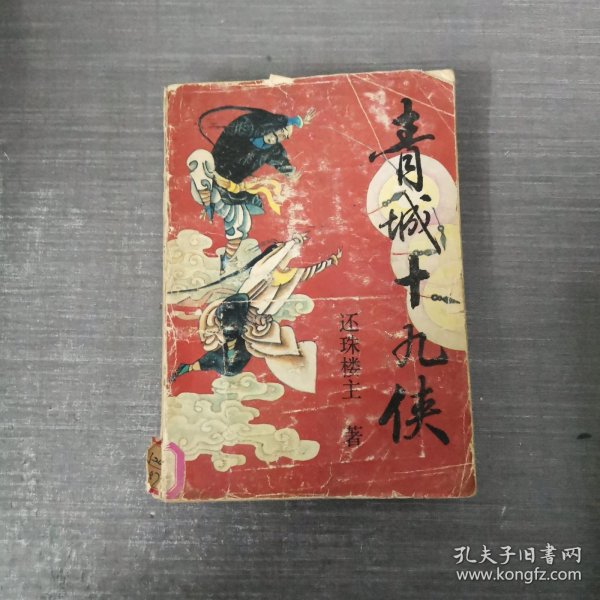 青城十九侠
还珠楼主 著
孔夫子旧书网
www.kongfz.com